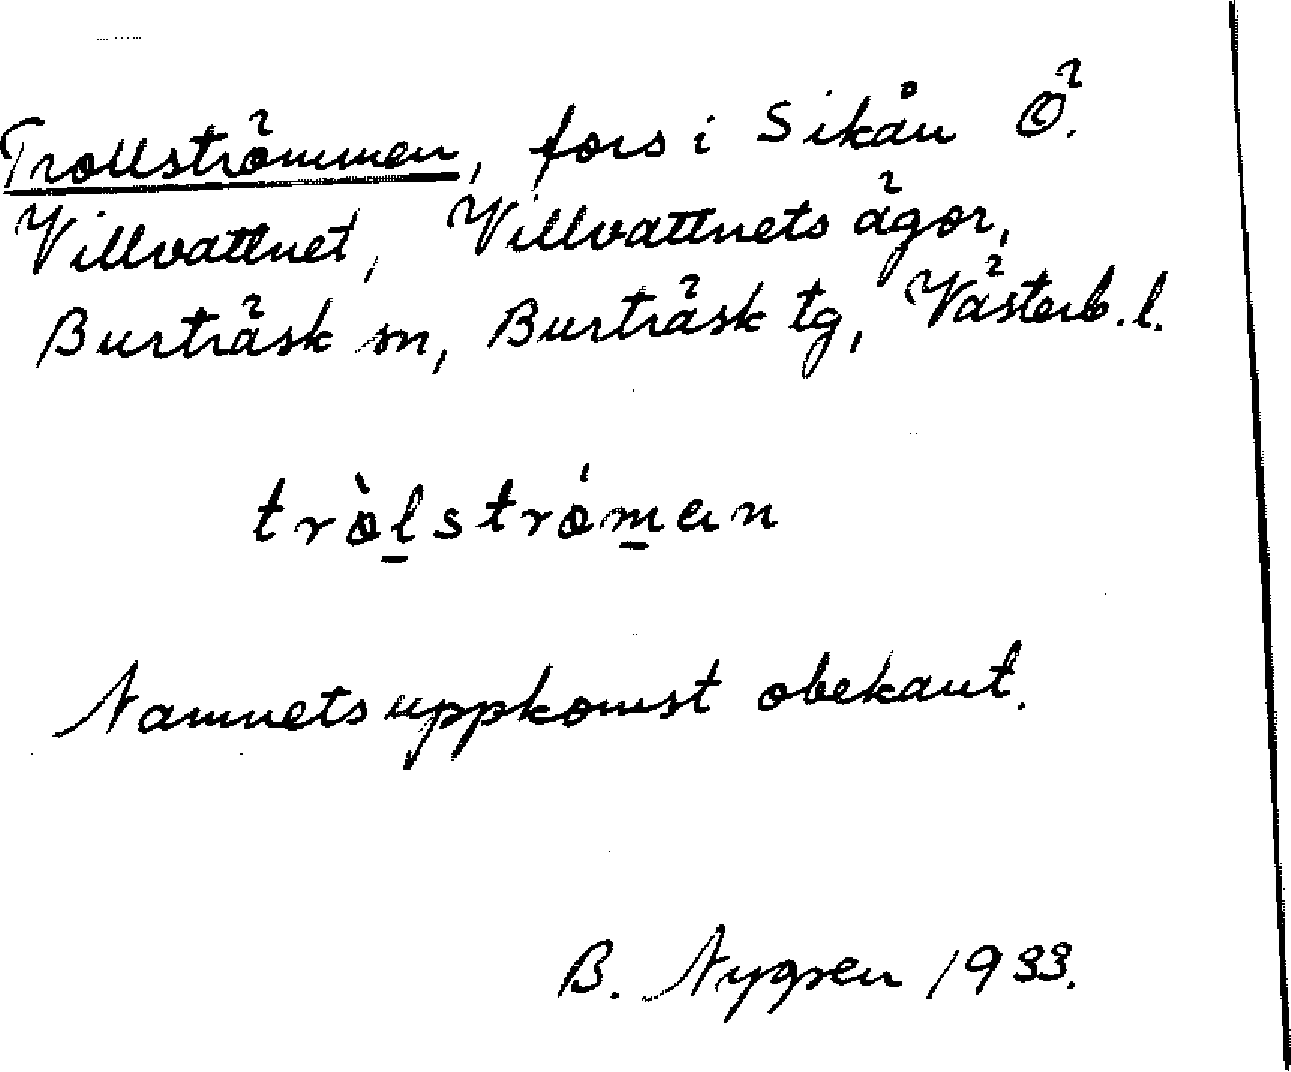 Trollströmmen, fors i Sikån Ö.
Villvattnet, Villvattnets ägor,
Burträsk sn, Burträsk tg, Västerb. l.
tròlstrǿmen
Namnets uppkomst obekant.
B. Nygren 1933.